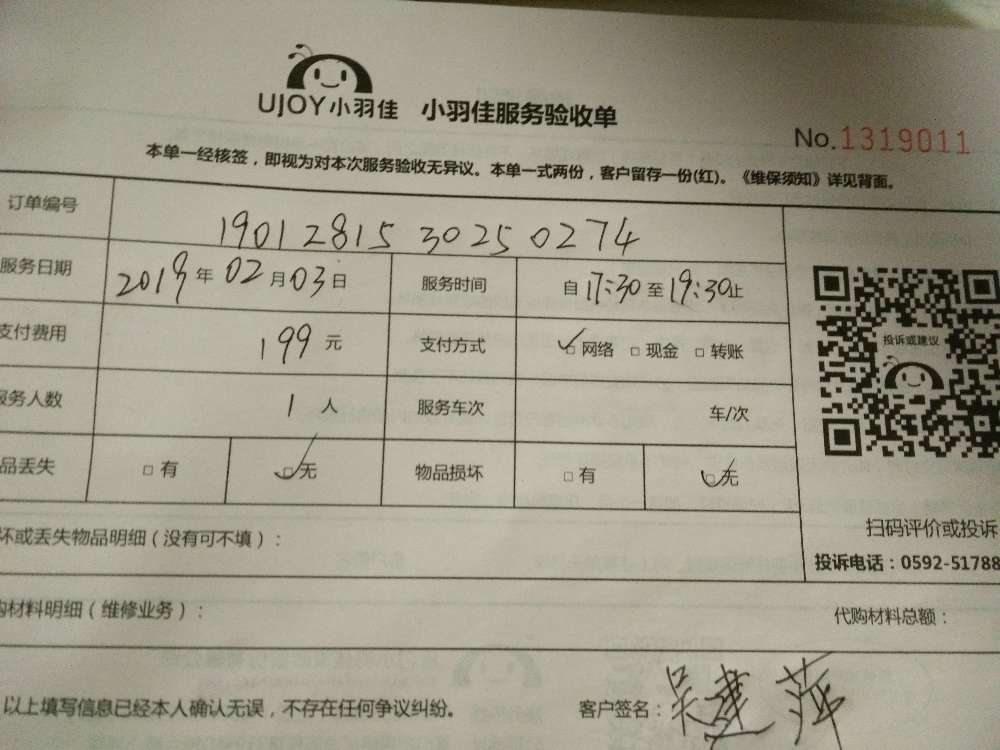 UJOY小羽佳 小羽佳服务验收单
No.1319011
本单一经核签，即视为对本次服务验收无异议。本单一式两份，客户留存一份(红)。《维保须知》详见背面。
订单编号 1901281530250274
服务日期 2019年02月03日 服务时间 自17:30至19:30止
支付费用 199元 支付方式 ☑网络 □现金 □转账
服务人数 1人 服务车次 车/次
品丢失 □有 ☑无 物品损坏 □有 ☑无
投诉或建议
扫码评价或投诉
投诉电话：0592-51788
坏或丢失物品明细（没有可不填）：
购材料明细（维修业务）： 代购材料总额：
以上填写信息已经本人确认无误，不存在任何争议纠纷。 客户签名：吴建萍